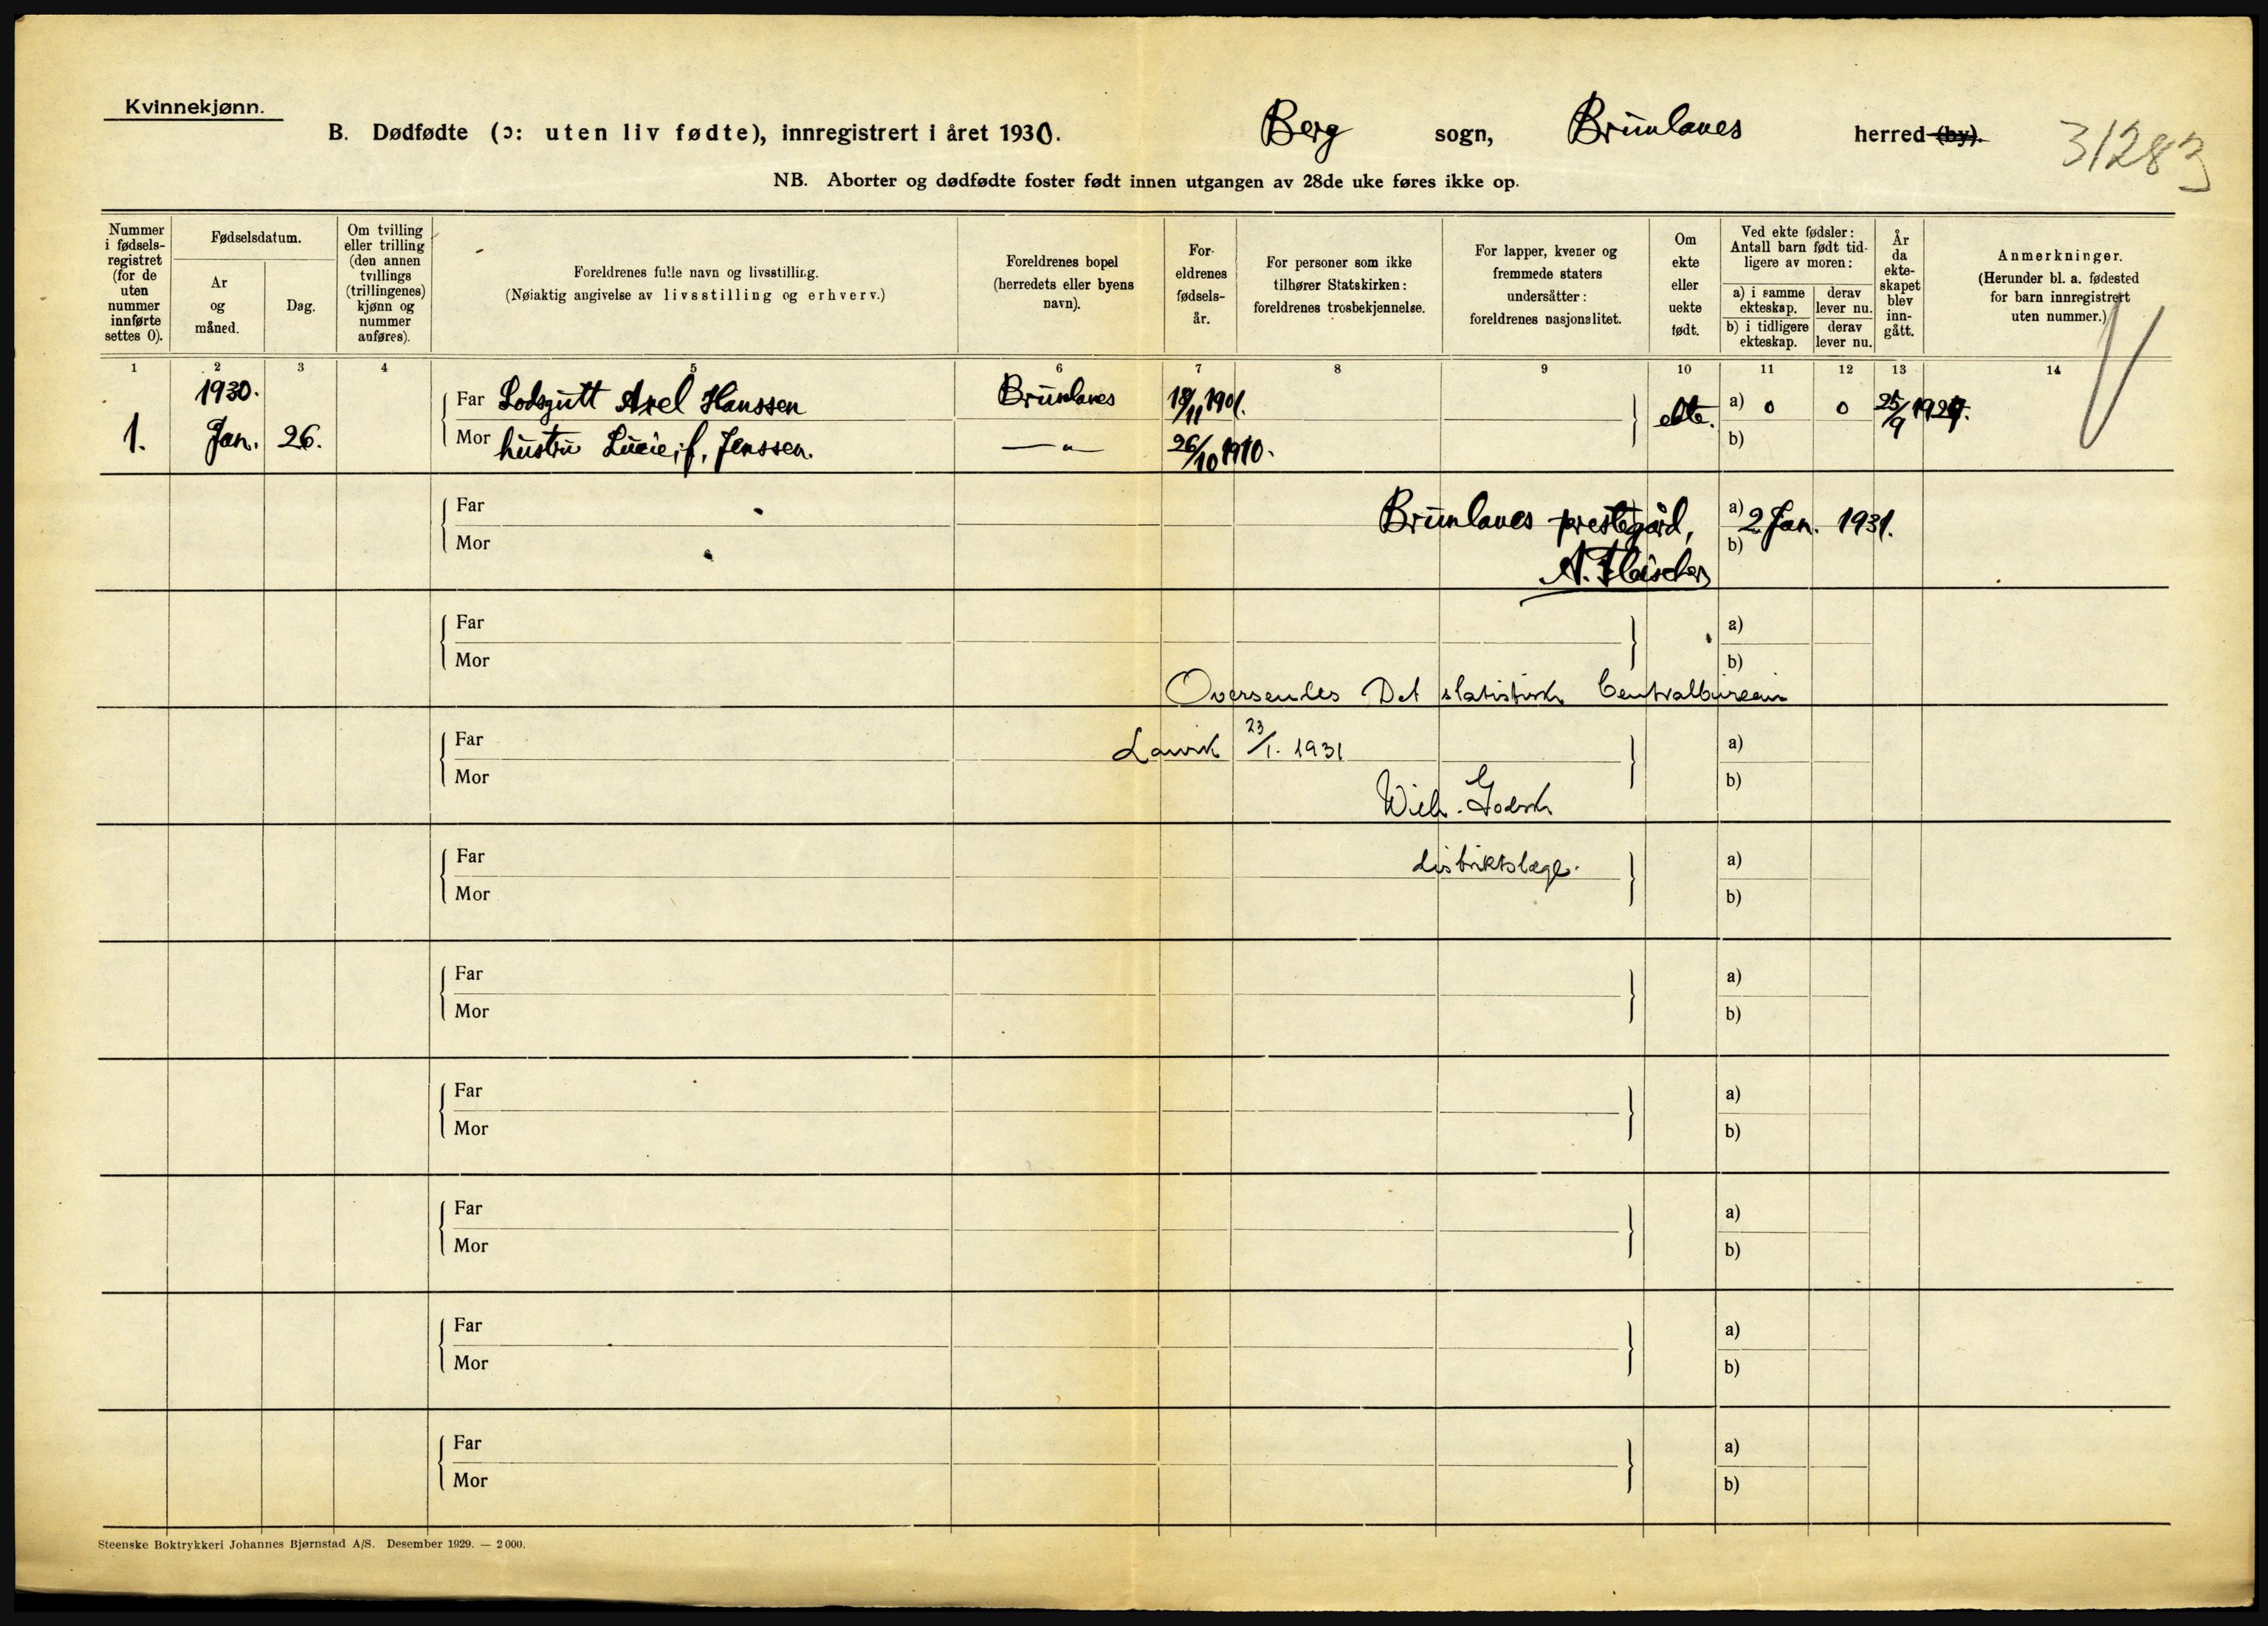 Kvinnekjønn.
B. Dødfødte (ɔ: uten liv fødte), innregistrert i året 1930. Berg sogn, Brunlanes herred (by).
31283
NB. Aborter og dødfødte foster født innen utgangen av 28de uke føres ikke op.
Nummer i fødsels- registret (for de uten nummer innførte settes 0).
Fødselsdatum.
År og måned.
Dag.
Om tvilling eller trilling (den annen tvillings (trillingenes) kjønn og nummer anføres).
Foreldrenes fulle navn og livsstilling.
(Nøiaktig angivelse av livsstilling og erhverv.)
Foreldrenes bopel (herredets eller byens navn).
For- eldrenes fødsels- år.
For personer som ikke tilhører Statskirken: foreldrenes trosbekjennelse.
For lapper, kvener og fremmede staters undersåtter: foreldrenes nasjonalitet.
Om ekte eller uekte født.
Ved ekte fødsler: Antall barn født tid- ligere av moren:
a) i samme ekteskap. derav lever nu.
b) i tidligere ekteskap. derav lever nu.
År da ekte- skapet blev inn- gått.
Anmerkninger.
(Herunder bl. a. fødested for barn innregistrert uten nummer.)
1 2 3 4 5 6 7 8 9 10 11 12 13 14
1930.
Far Lodsgutt Axel Hanssen Brunlanes 18/11 1901. ekte. a) 0 0 25/9 1929.
1. Jan. 26. Mor hustru Lucie, f. Jenssen. — " — 26/10 1910. b)
Far Brunlanes prestegård, a) 2 Jan. 1931.
Mor b)
A. Fleischer
Far a)
Mor b)
Oversendes Det statistisk Centralbureau
Far Larvik 23/1. 1931 a)
Mor b)
Wilh.
Far distriktslæge. a)
Mor b)
Far a)
Mor b)
Far a)
Mor b)
Far a)
Mor b)
Far a)
Mor b)
Far a)
Mor b)
Steenske Boktrykkeri Johannes Bjørnstad A/S. Desember 1929. — 2 000.